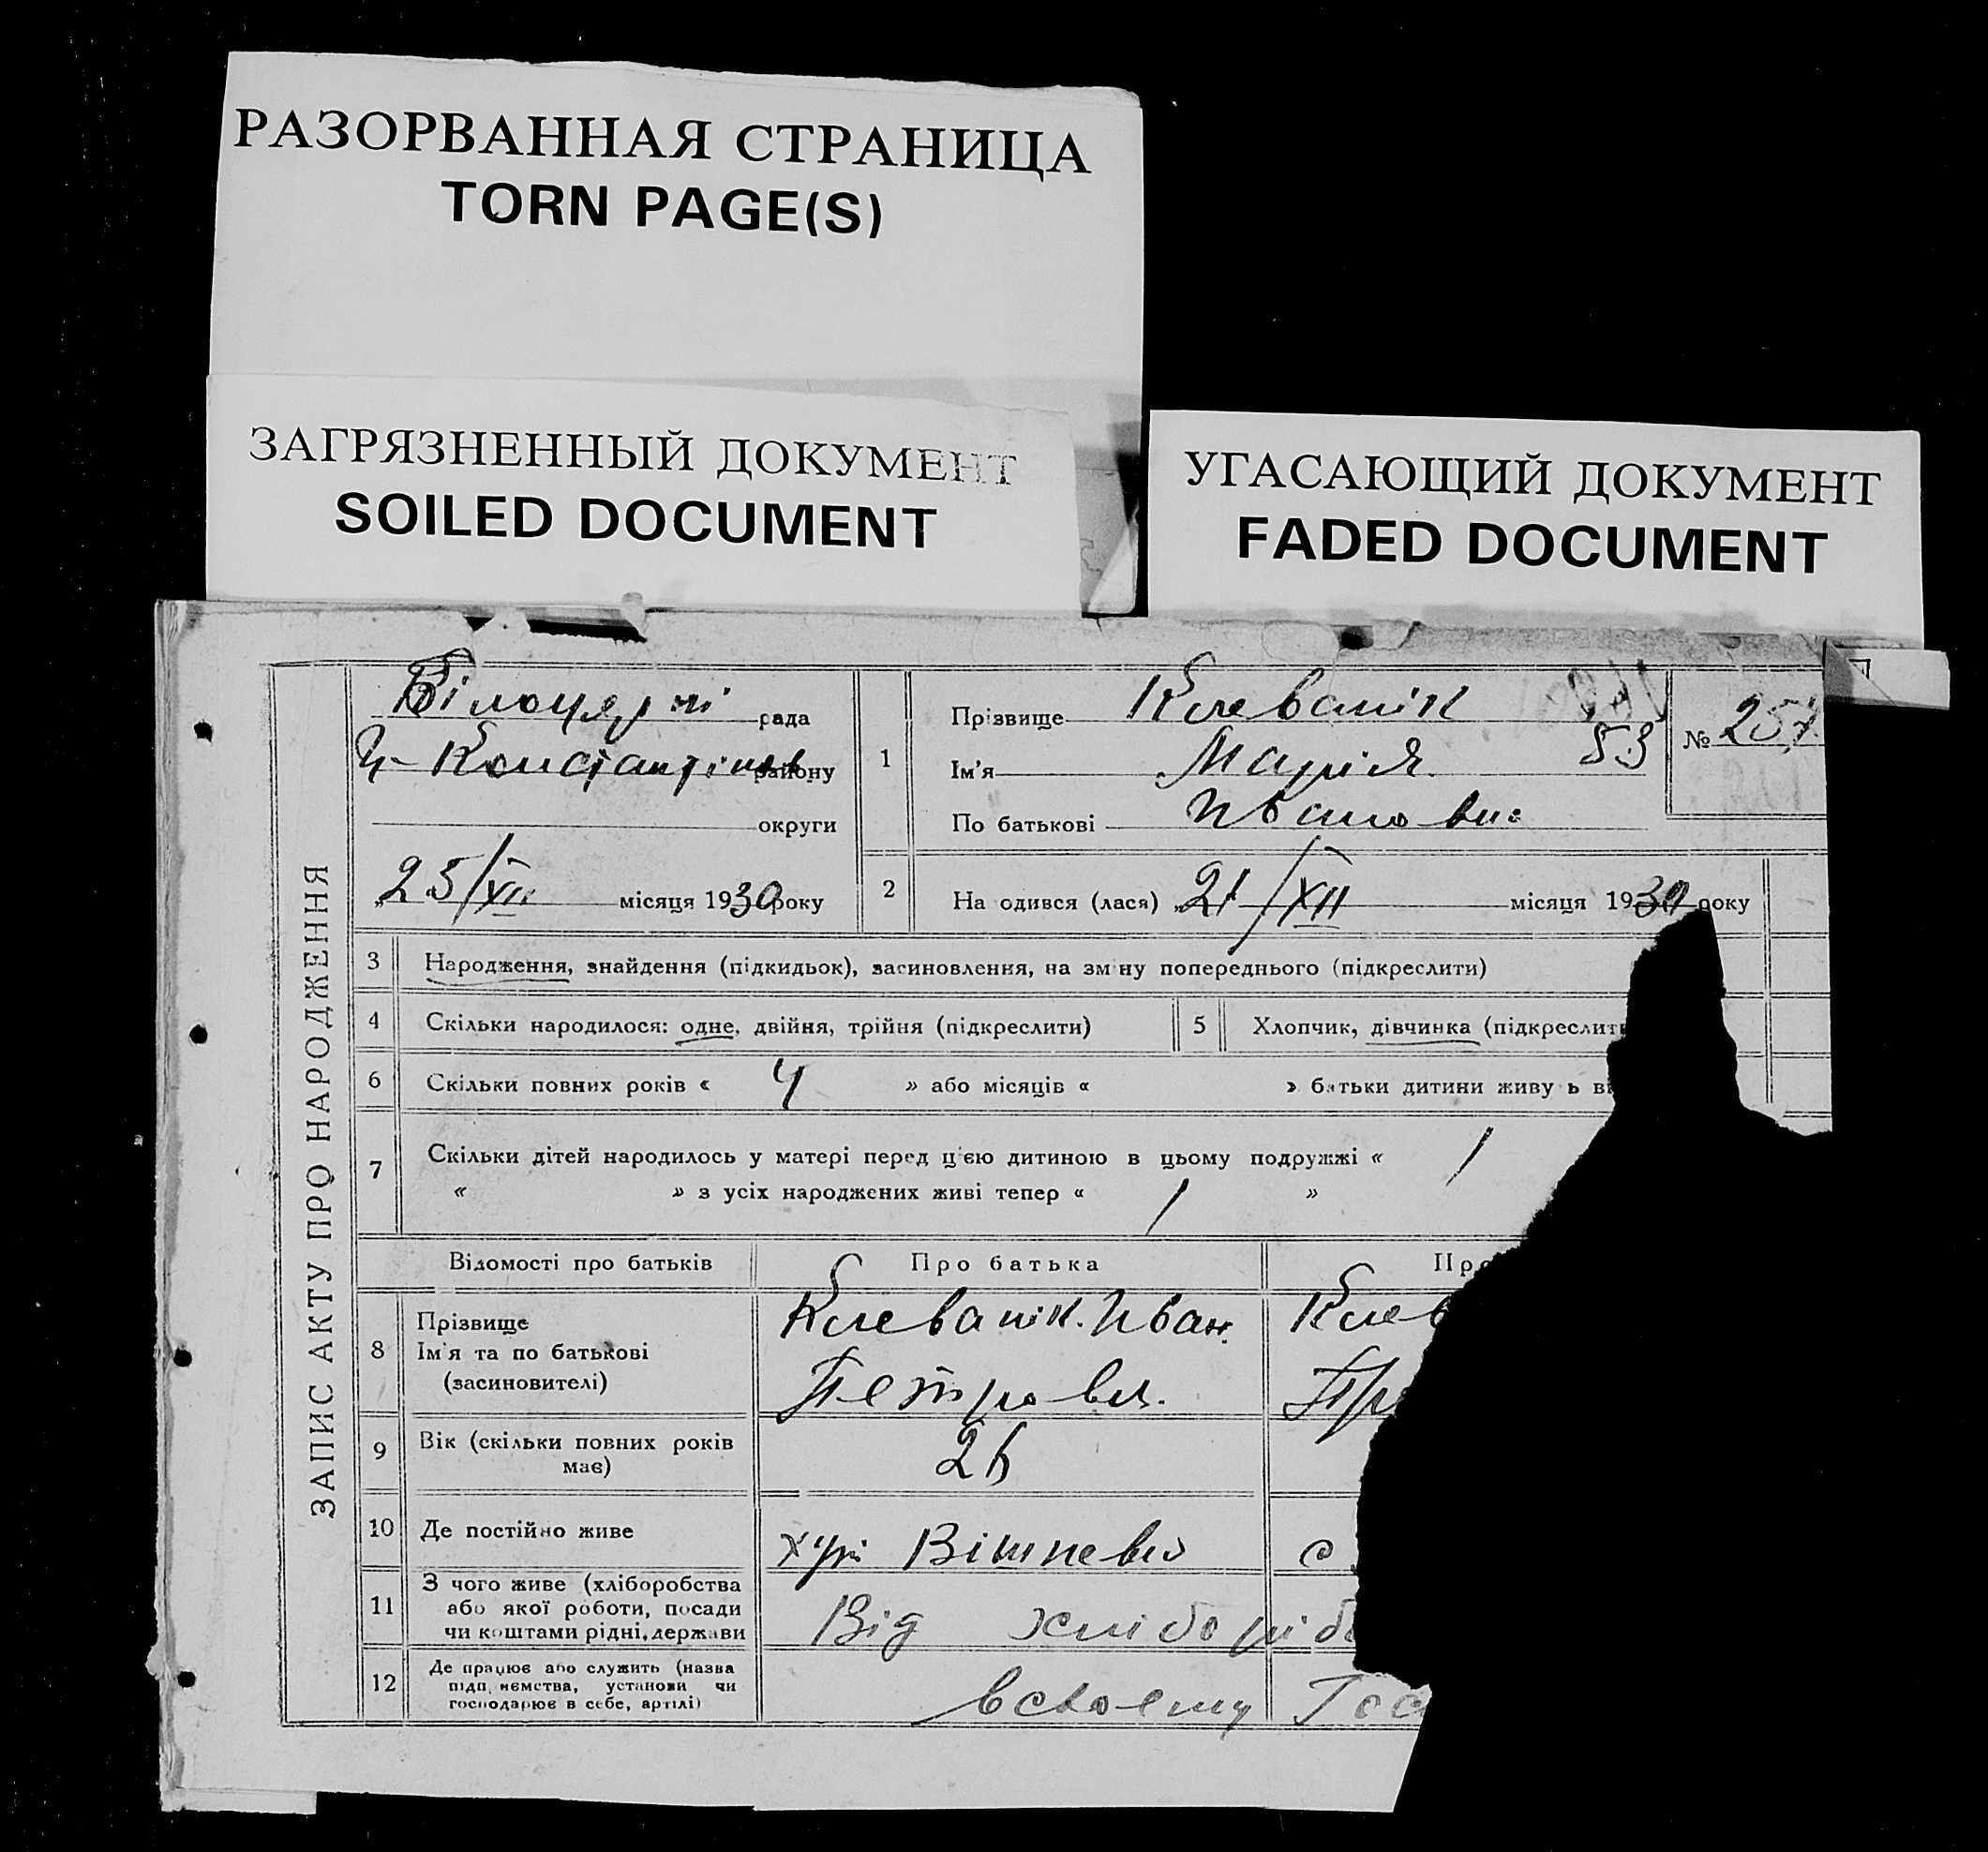 РАЗОРВАННАЯ СТРАНИЦА
TORN PAGE(S)
ЗАГРЯЗНЕННЫЙ ДОКУМЕНТ
SOILED DOCUMENT
УГАСАЮЩИЙ ДОКУМЕНТ
FADED DOCUMENT
ЗАПИС АКТУ ПРО НАРОДЖЕННЯ
рада
району
округи
25/XII місяця 1930 року
1
Прізвище Клеванік
Ім'я Марія 53
По батькові Іванов
№ 257
2 На одився (лася) „21/XII місяця 1930 року
3 Народження, знайдення (підкидьок), засиновлення, на зм ну попереднього (підкреслити)
4 Скільки народилося: одне, двійня, трійня (підкреслити) 5 Хлопчик, дівчинка (підкреслит
6 Скільки повних років « 4 » або місяців « » батьки дитини живу ь ві
7 Скільки дітей народилось у матері перед ц єю дитиною в цьому подружжі « 1
« » з усіх народжених живі тепер « 1 »
Відомості про батьків Про батька Про
8 Прізвище
Ім'я та по батькові
(засиновителі)
Клеванік Иван.
Петров
Клев
Пр
9 Вік (скільки повних років
має)
26
10 Де постійно живе
хут
с
11 З чого живе (хліборобства
або якої роботи, посади
чи коштами рідні, держави
Від хліборіб
12 Де працює або служить (назва
підп иємства, установи чи
господарює в себе, артілі)
всвоему Гос